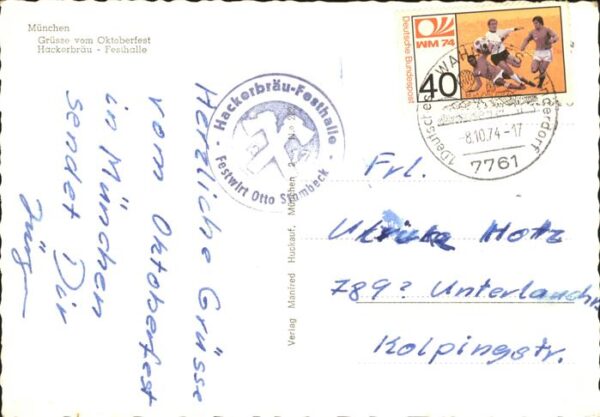 München
Grüsse vom Oktoberfest
Hackerbräu - Festhalle
Herzliche Grüsse
vom Oktoberfest
in München
sendet Dir
Jürgen
Hackerbräu-Festhalle
Festwirt Otto Stumbeck
Verlag Manfred Huckauf, München
WM 74
Deutsche Bundespost
40
-8.10.74-17
7761
Frl.
Ulrike Hotz
789? Unterlauchr
Kolpingstr.